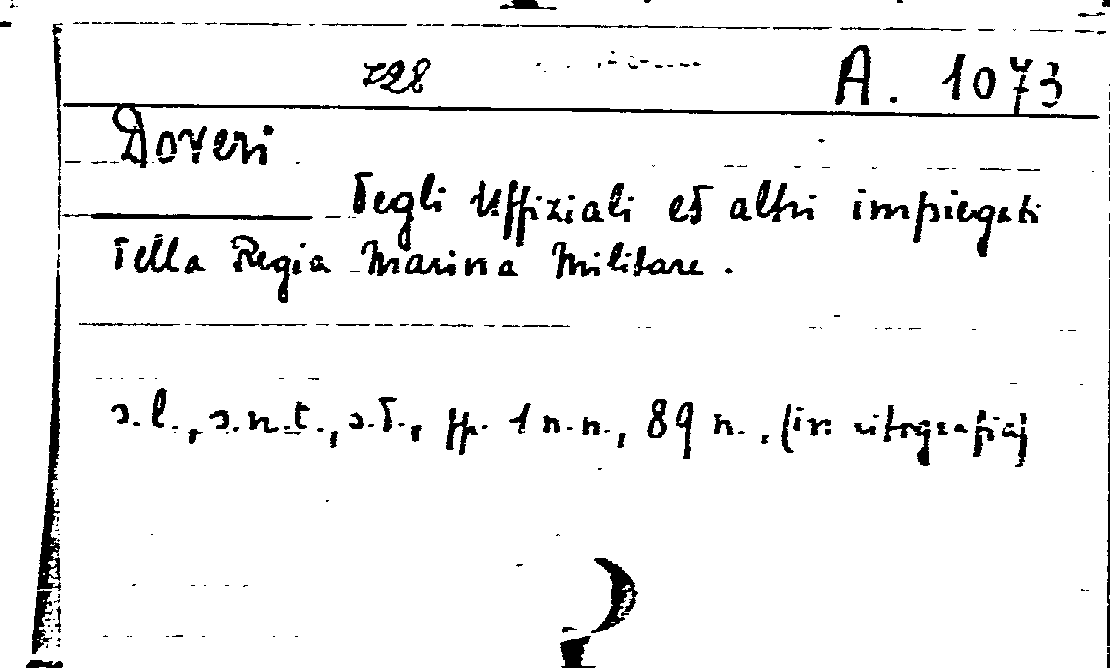 728 A. 1073
Doveri
degli Uffiziali ed altri impiegati
della Regia Marina Militare.
s.l., s.n.t., s.d., pp. 1 n.n., 89 n., (in litografia)